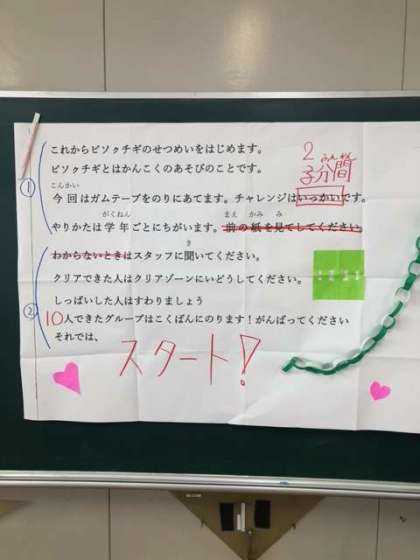 これからビソクチギのせつめいをはじめます。
ビソクチギとはかんこくのあそびのことです。
こんかい
今回はガムテープをのりにあてます。チャレンジはいっかいです。
がくねん まえ かみ み
やりかたは学年ごとにちがいます。前の紙を見てしてください。
き
わからないときはスタッフに聞いてください。
クリアできた人はクリアゾーンにいどうしてください。
しっぱいした人はすわりましょう
10人できたグループはこくばんにのります!がんばってください
それでは、
スタート!
①
②
2
分間